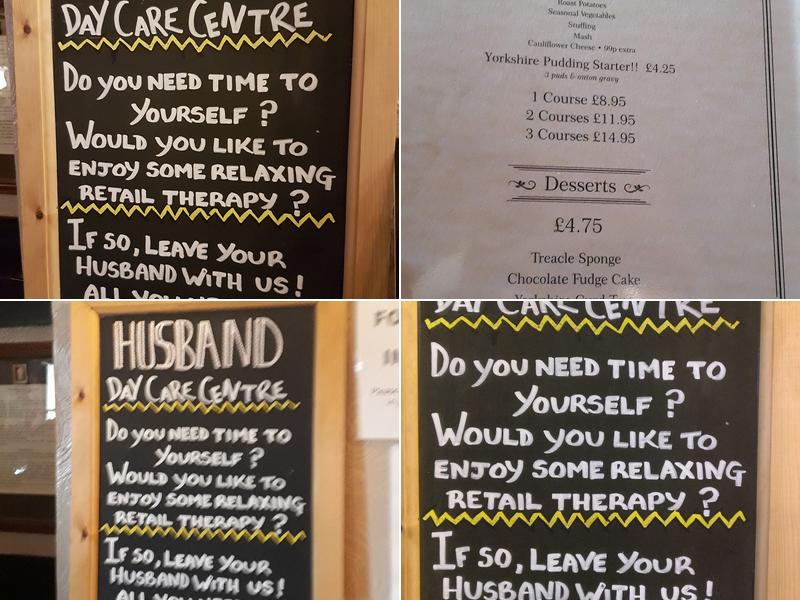 DAY CARE CENTRE
DO YOU NEED TIME TO
YOURSELF ?
WOULD YOU LIKE TO
ENJOY SOME RELAXING
RETAIL THERAPY ?
IF SO, LEAVE YOUR
HUSBAND WITH US!
ALL YOU
Roast Potatoes
Seasonal Vegetables
Stuffing
Mash
Cauliflower Cheese • 99p extra
Yorkshire Pudding Starter!! £4.25
3 puds & onion gravy
1 Course £8.95
2 Courses £11.95
3 Courses £14.95
Desserts
£4.75
Treacle Sponge
Chocolate Fudge Cake
HUSBAND
DAY CARE CENTRE
DO YOU NEED TIME TO
YOURSELF ?
WOULD YOU LIKE TO
ENJOY SOME RELAXING
RETAIL THERAPY ?
IF SO, LEAVE YOUR
HUSBAND WITH US!
ALL YOU
FO
DAY CARE CENTRE
DO YOU NEED TIME TO
YOURSELF ?
WOULD YOU LIKE TO
ENJOY SOME RELAXING
RETAIL THERAPY ?
IF SO, LEAVE YOUR
HUSBAND WITH US!